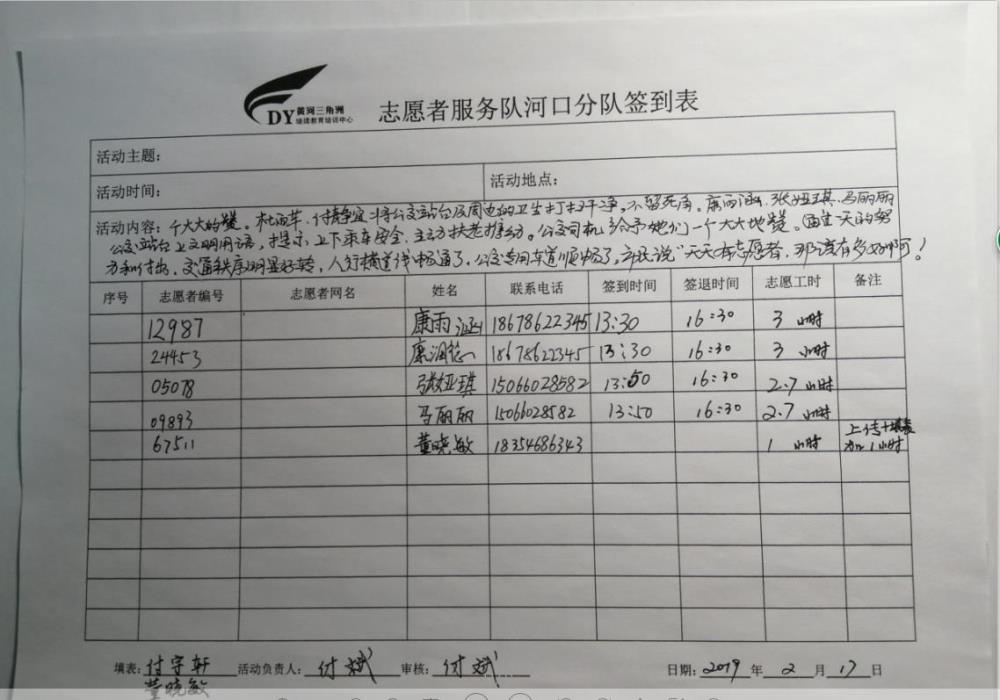 DY 黄河三角洲
继续教育培训中心
志愿者服务队河口分队签到表
活动主题:
活动时间: 活动地点:
活动内容: 个大大的赞。杜雨苹、付静宜将公交站台及周边的卫生打扫干净,不留死角。康雨涵、张娅琪、马丽丽
公交站台上文明用语,提示,上下乘车安全,主动扶老携幼。公交司机给予她们一个大大地赞。通过一天的努
力和付出,交通秩序明显好转,人行横道线畅通了,公交专用车道顺畅了,市民说“天天有志愿者,那该有多好啊!
序号 志愿者编号 志愿者网名 姓名 联系电话 签到时间 签退时间 志愿工时 备注
12987 康雨涵 18678622345 13:30 16:30 3小时
24453 康润 18678622345 13:30 16:30 3小时
05078 张娅琪 15066028582 13:50 16:30 2.7小时
09893 马丽丽 15066028582 13:50 16:30 2.7小时
67511 董晓敏 18354686343 1小时 上传+填表
加1小时
填表: 付宇轩 活动负责人: 付斌 审核: 付斌 日期: 2019 年 2 月 17 日
董晓敏